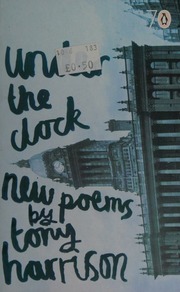 under
the
clock
£0.50
new poems
by
tony
harrison